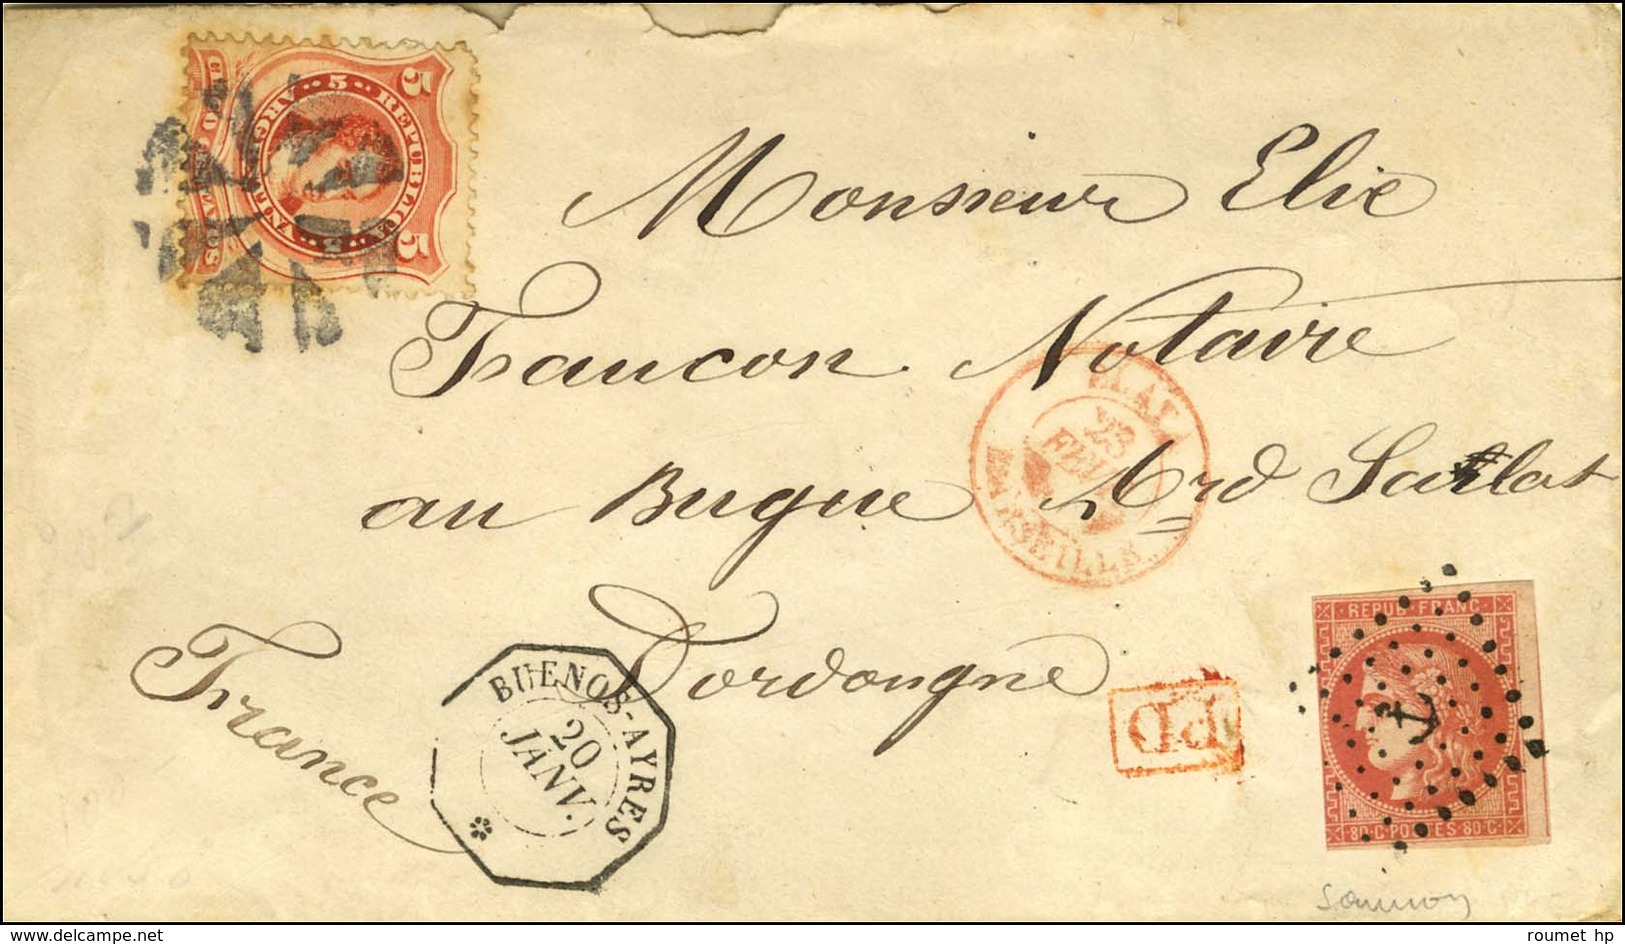 5 REPUBLICA ARGENTINA 5
5 5
CENTAVOS
Monsieur Elie
Francon Notaire
au Bugue Ard Sarlat
Dordogne
France
BUENOS-AYRES
20
JANV.
23
FEVR
MARSEILLE
PD
REPUB FRANC
80·C·POSTES·80·C
www.delcampe.net
roumet hp